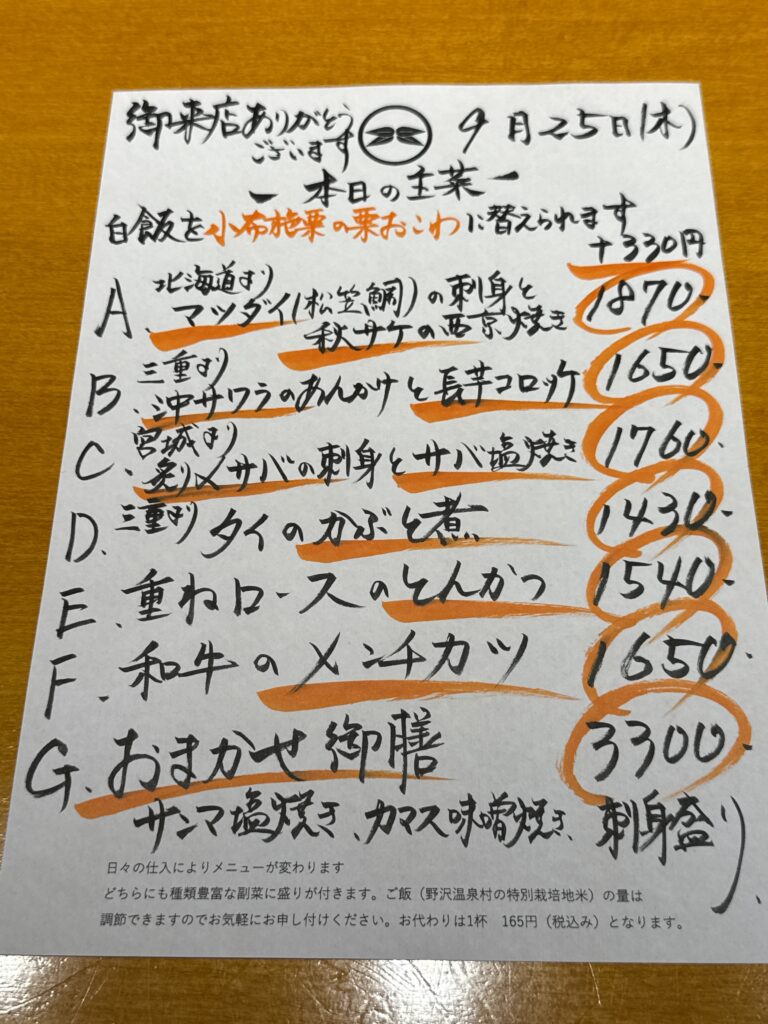 御来店ありがとうございます 9月25日(木)
ー本日の主菜ー
白飯を小布施栗の栗おこわに替えられます
+330円
A、北海道より マツダイ(松笠鯛)の刺身と 1870-
秋サケの西京焼き
B、三重より 沖サワラのあんかけと長芋コロッケ 1650-
C、宮城より 炙り〆サバの刺身とサバ塩焼き 1760-
D、三重より タイのかぶと煮 1430-
E、重ねロースのとんかつ 1540-
F、和牛のメンチカツ 1650-
G、おまかせ御膳 3300-
サンマ塩焼き、カマス味噌焼き、刺身盛り、
日々の仕入によりメニューが変わります
どちらにも種類豊富な副菜に盛りが付きます。ご飯（野沢温泉村の特別栽培地米）の量は
調節できますのでお気軽にお申し付けください。お代わりは1杯　165円（税込み）となります。